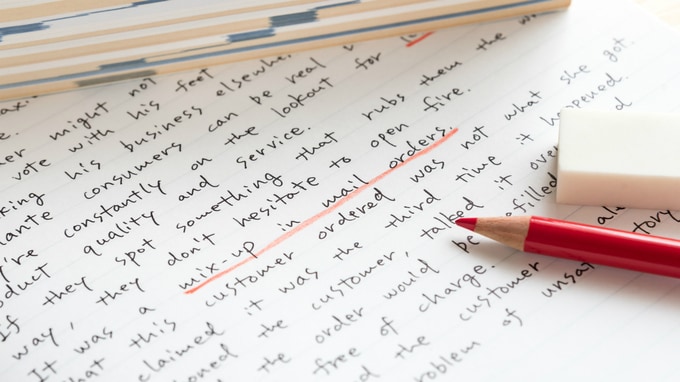 might not
vote with his feet
his business
consumers can be real
constantly on the lookout for
quality and service.
If they spot something that rubs them the
way, they don't hesitate to open fire.
It was a mix-up in mail orders.
this customer ordered was not what she got.
claimed it was the third time it happened.
the customer, talked it
the order would be
free of charge.
the customer
problem of